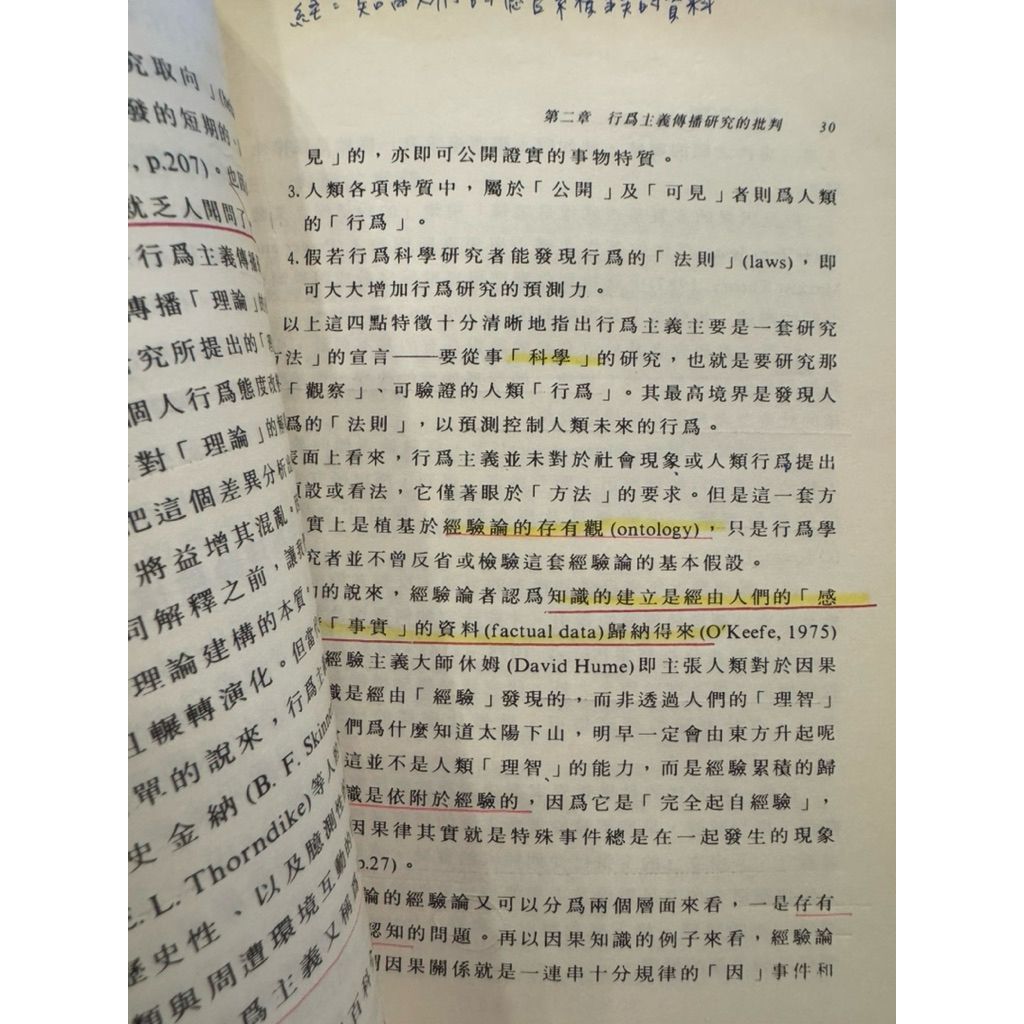 究取向」
發的短期的、
, p.207)。也
就乏人聞問了
行爲主義傳播
傳播「理論」的
究所提出的「
個人行爲態度改
對「理論」的
把這個差異分析
將益增其混亂。
同解釋之前，讓我
理論建構的本質
且輾轉演化。但當
單的說來，行爲主
史金納 (B. F. Skinne
E. L. Thorndike)等人
歷史性、以及臆測性
類與周遭環境互動的
爲主義又稱爲
的資料
第二章　行爲主義傳播研究的批判　30
見」的，亦即可公開證實的事物特質。
3. 人類各項特質中，屬於「公開」及「可見」者則爲人類
的「行爲」。
4. 假若行爲科學研究者能發現行爲的「法則」(laws)，即
可大大增加行爲研究的預測力。
以上這四點特徵十分清晰地指出行爲主義主要是一套研究
方法」的宣言——要從事「科學」的研究，也就是要研究那
「觀察」、可驗證的人類「行爲」。其最高境界是發現人
爲的「法則」，以預測控制人類未來的行爲。
表面上看來，行爲主義並未對於社會現象或人類行爲提出
預設或看法，它僅著眼於「方法」的要求。但是這一套方
實上是植基於經驗論的存有觀(ontology)，只是行爲學
究者並不曾反省或檢驗這套經驗論的基本假設。
的說來，經驗論者認爲知識的建立是經由人們的「感
「事實」的資料(factual data)歸納得來(O'Keefe, 1975)
經驗主義大師休姆(David Hume)即主張人類對於因果
識是經由「經驗」發現的，而非透過人們的「理智」
們爲什麼知道太陽下山，明早一定會由東方升起呢
這並不是人類「理智」的能力，而是經驗累積的歸
識是依附於經驗的，因爲它是「完全起自經驗」，
因果律其實就是特殊事件總是在一起發生的現象
p.27)。
論的經驗論又可以分爲兩個層面來看，一是存有
認知的問題。再以因果知識的例子來看，經驗論
因果關係就是一連串十分規律的「因」事件和